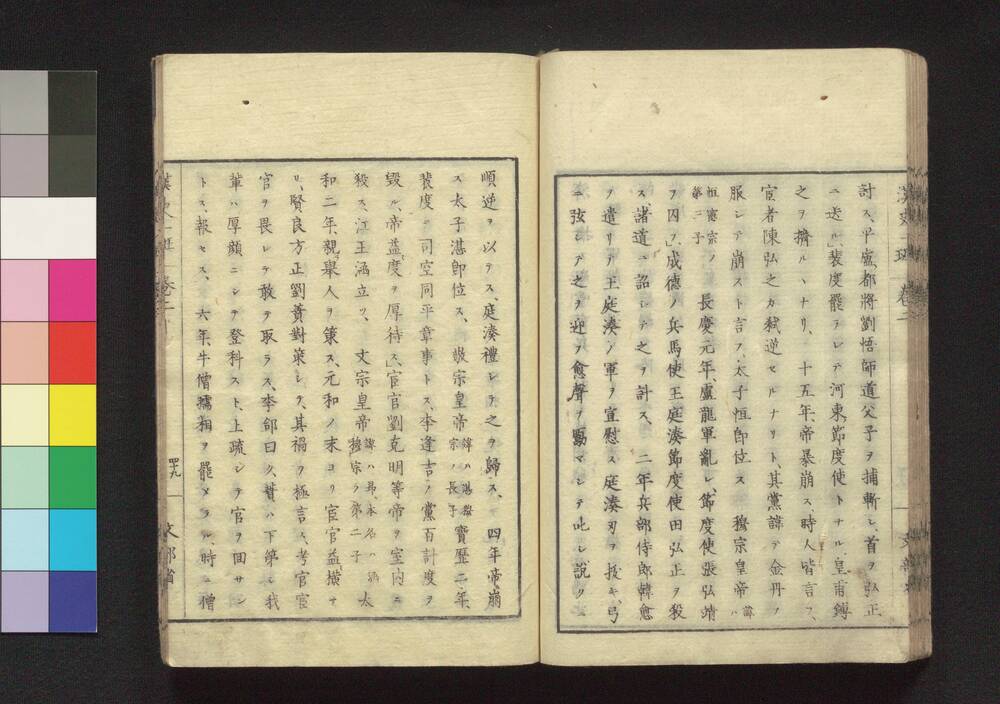 漢史一班 卷二
計ス、平盧都將劉悟師道父子ヲ捕斬シ、首ヲ弘正
ニ送ル、裴度罷テレテ河東節度使トナル、皇甫鎛
之ヲ擠ルヽナリ、十五年、帝暴崩ス、時人皆言フ、
宦者陳弘之カ弑逆セルナリト、其黨諱テ金丹ノ
服シテ崩スト言フ、太子恒卽位ス 穆宗皇帝 諱ハ
恒憲宗ノ第三子 長慶元年、盧龍軍亂レ、節度使張弘靖
ヲ囚フ、成德ノ兵馬使王庭湊節度使田弘正ヲ殺
ス、諸道ニ詔シテ之ヲ計ス、二年兵部侍郎韓愈
ヲ遣リテ王庭湊ノ軍ヲ宣慰ス庭湊刃ヲ拔キ、弓
ニ弦シテ之ヲ迎フ愈聲ヲ勵マシテ此レ說クニ
順逆ヲ以テス、庭湊禮シテ之ヲ歸ス、四年帝崩
ス太子湛卽位ス、敬宗皇帝 諱ハ湛穆宗ノ長子 寶歷二年、
裴度ヲ司空同平章事トス、李逢吉ノ黨百計度ヲ
毀ル、帝益度ヲ厚待ス、宦官劉克明等帝ヲ室内ニ
殺ス、江王涵立ツ、文宗皇帝 諱ハ昻、本名ハ涵穆宗ノ第二子 太
和二年、親擧人ヲ策ス、元和ノ末ヨリ宦官益橫ナ
リ、賢良方正劉蕡對策シテ、其禍ヲ極言ス、考官宦
官ヲ畏レテ敢テ取ラス、李郃曰ク、蕡ハ下第シ我
輩ハ厚顔ニシテ登科スト、上疏シテ官ヲ回サン
トス、報セス、六年、牛僧孺相ヲ罷メラル、時ニ僧
卷二
四十九
文部省